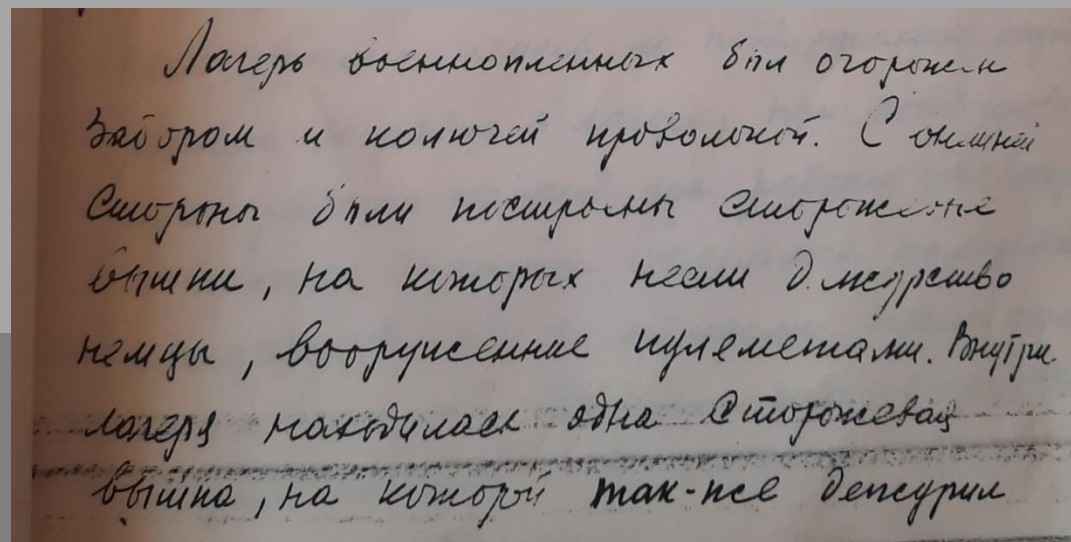 Лагерь военнопленных был огорожен
забором и колючей проволокой. С внешней
стороны были построены сторожевые
вышки, на которых несли дежурство
немцы, вооруженные пулеметами. Внутри
лагеря находилась одна сторожевая
вышка, на которой так-же дежурил